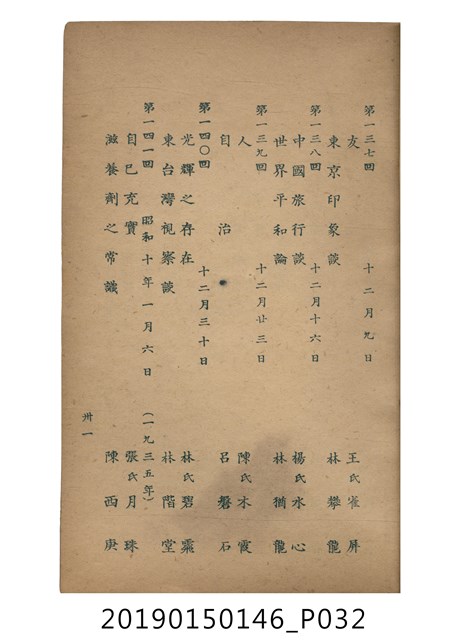 第一三七回　十二月九日
友　王氏雀屏
東京印象談　林攀龍
第一三八回　十二月十六日
中國旅行談　楊氏水心
世界平和論　林猶龍
第一三九回　十二月廿三日
人　陳氏水霞
自治　呂磐石
第一四〇回　十二月三十日
光輝之存在　林氏碧霖
東台灣視察談　林階堂
第一四一回　昭和十年一月六日　(一九三五年)
自己充實　張氏月珠
滋養劑之常識　陳西庚
卅一
20190150146_P032